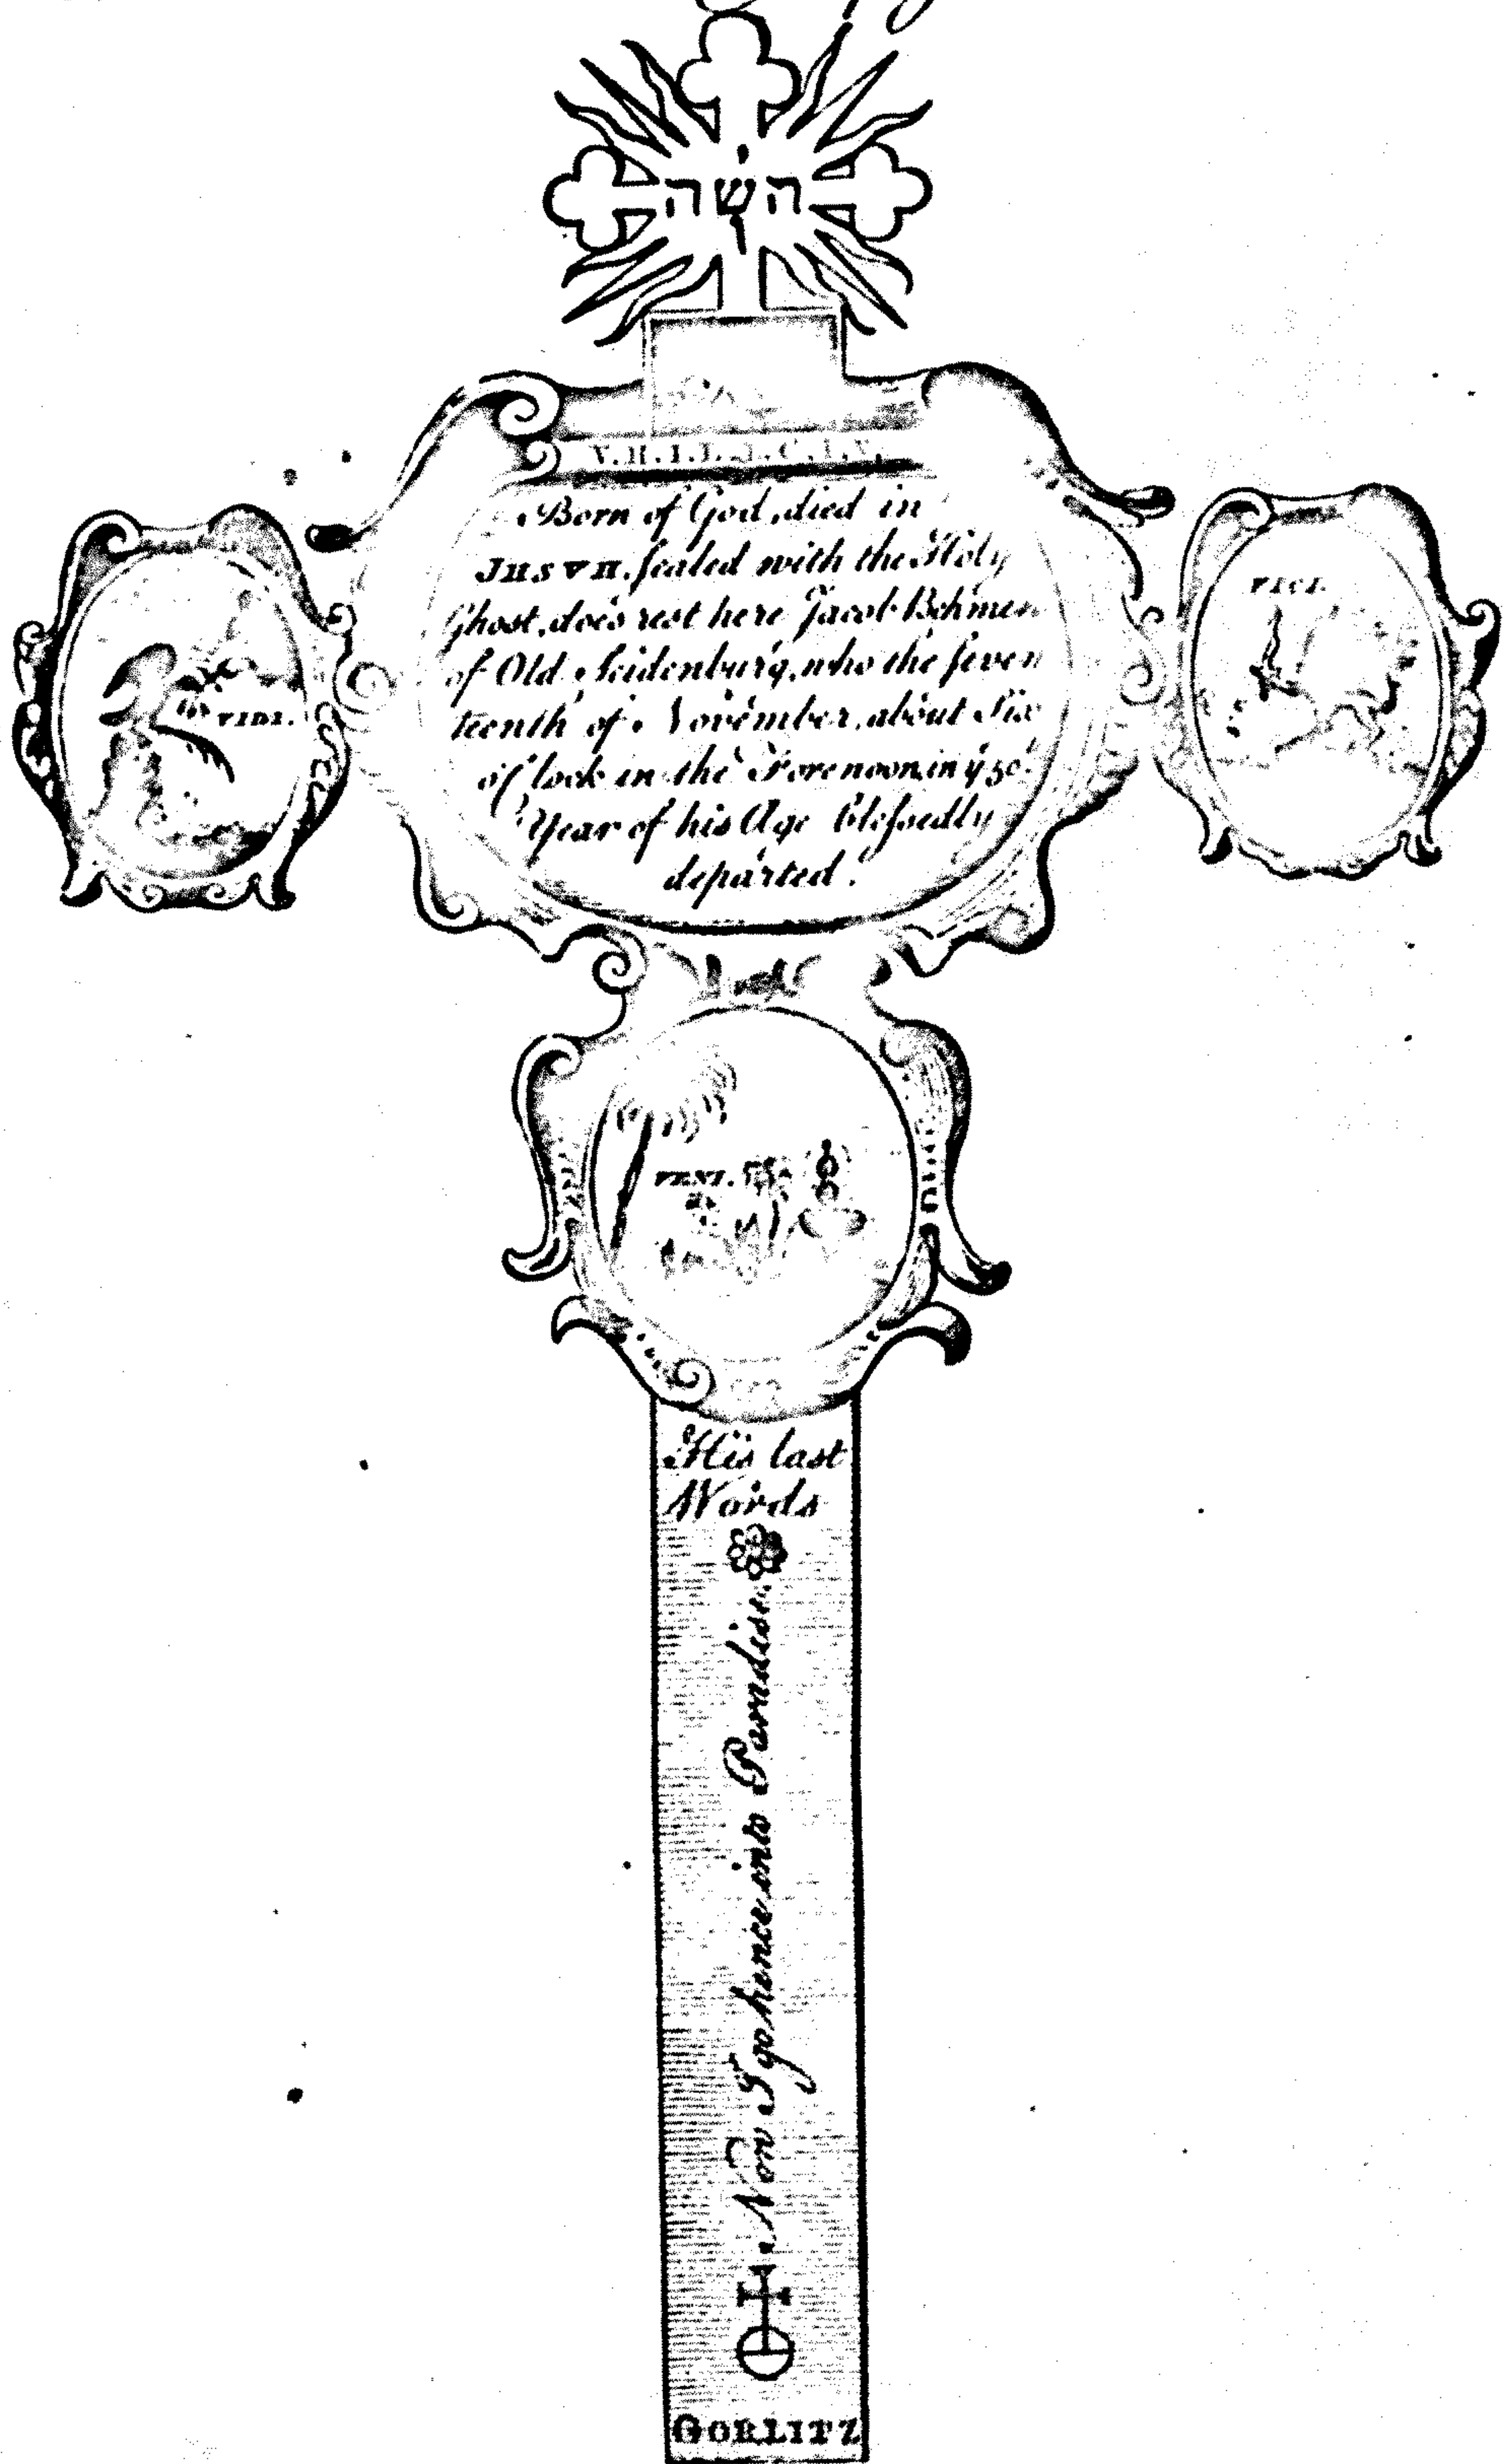 יהשוה
V.H.I.L.I.C.I.V.
Born of God, died in
JHSVH. sealed with the Holy
Ghost, does rest here Jacob Behmen
of Old Seidenburg, who the seven
teenth of November, about Six
o'Clock in the Forenoon, in ye 50.
Year of his Age blessedly
departed.
VIDI.
VICI.
VENI.
His last
Words
Now I go hence into Paradise.
GORLITZ